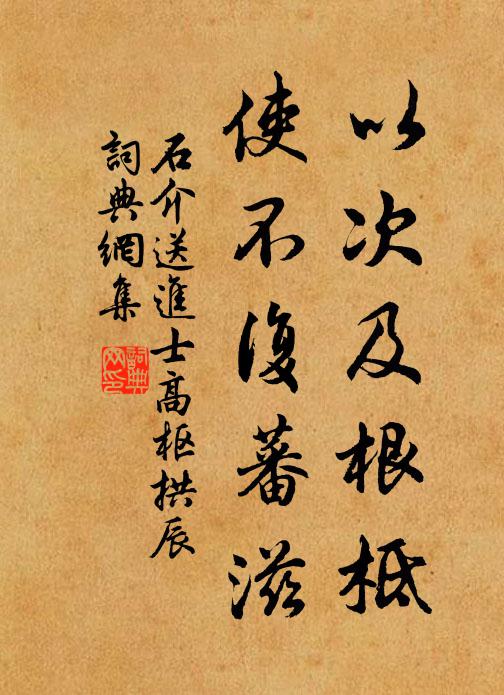 以次及根柢
使不復蕃滋
石介送進士高枢拱辰
詞典網集
詞典网印